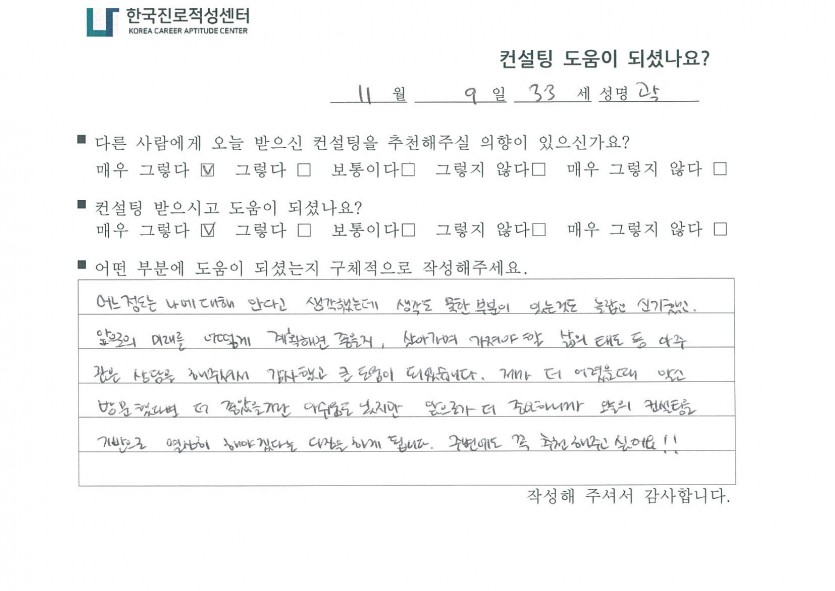 한국진로적성센터
KOREA CAREER APTITUDE CENTER
컨설팅 도움이 되셨나요?
11 월 9 일 33 세 성명 곽
■ 다른 사람에게 오늘 받으신 컨설팅을 추천해주실 의향이 있으신가요?
매우 그렇다 ☑ 그렇다 □ 보통이다□ 그렇지 않다□ 매우 그렇지 않다 □
■ 컨설팅 받으시고 도움이 되셨나요?
매우 그렇다 ☑ 그렇다 □ 보통이다□ 그렇지 않다□ 매우 그렇지 않다 □
■ 어떤 부분에 도움이 되셨는지 구체적으로 작성해주세요.
어느정도는 나에 대해 안다고 생각했는데 생각도 못한 부분이 있는것도 놀랍고 신기했고.
앞으로의 미래를 어떻게 계획하면 좋을지, 살아가며 가져야 할 삶의 태도 등 아주
많은 상담을 해주셔서 감사했고 큰 도움이 되었습니다. 제가 더 어렸을때 알고
방문했다면 더 좋았을거란 아쉬움도 있지만 앞으로가 더 중요하니까 오늘의 컨설팅을
기반으로 열심히 해야겠다는 다짐을 하게 됩니다. 주변에도 꼭 추천해주고 싶어요!!
작성해 주셔서 감사합니다.